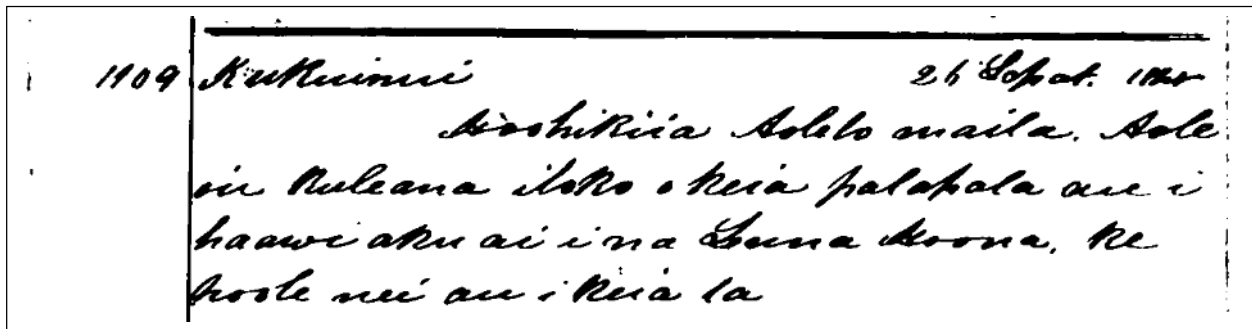 1109 Kukuinui 26 Sepat.
Hoohikiia Aole maila. Aole
oiu Kuleana iloko o keia palapala au i
haawi aku ai i na Luna Hoona, Ke
hoole nei au i keia la